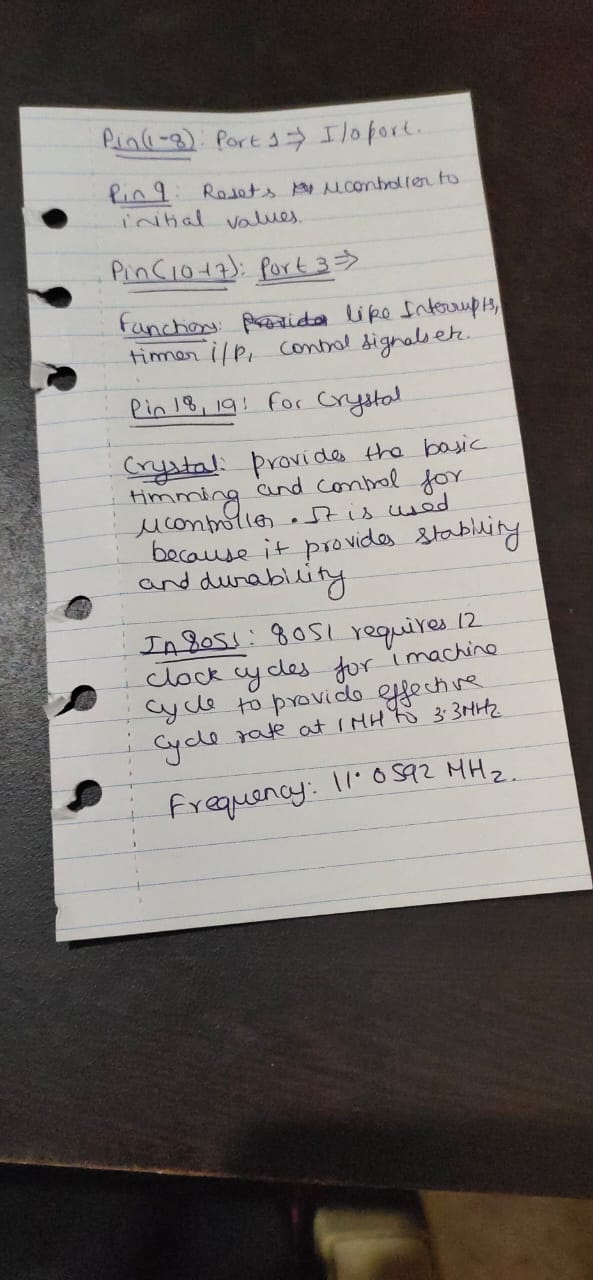 Pin(1-8): Port 1 ⇒ I/o port.
Pin 9: Resets μcontroller to
initial values.
Pin(10-17): Port 3 ⇒
Functions: like Interrupts,
timer i/p, control signals etc.
Pin 18, 19: For Crystal
Crystal: provides the basic
timming and control for
μcontroller. It is used
because it provides stability
and durability
In 8051: 8051 requires 12
clock cycles for 1 machine
cycle to provide effective
cycle rate at 1MH to 3.3MHz
Frequency: 11.0592 MHz.